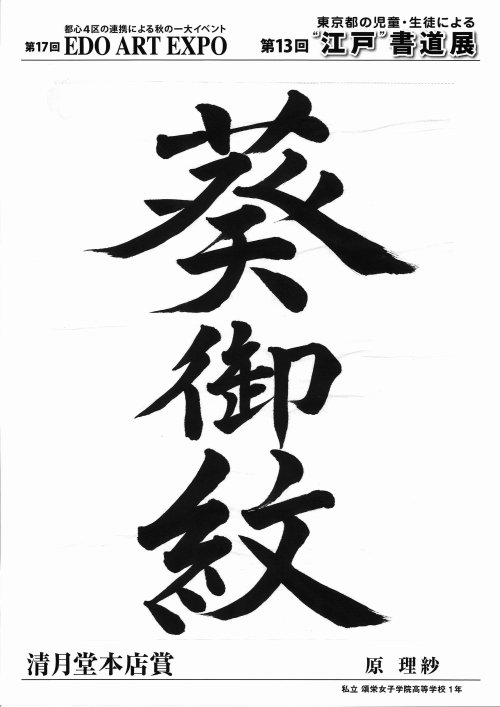 都心4区の連携による秋の一大イベント
第17回 EDO ART EXPO
東京都の児童・生徒による
第13回 "江戸"書道展
葵御紋
清月堂本店賞
原 理紗
私立 頌栄女子学院高等学校 1年